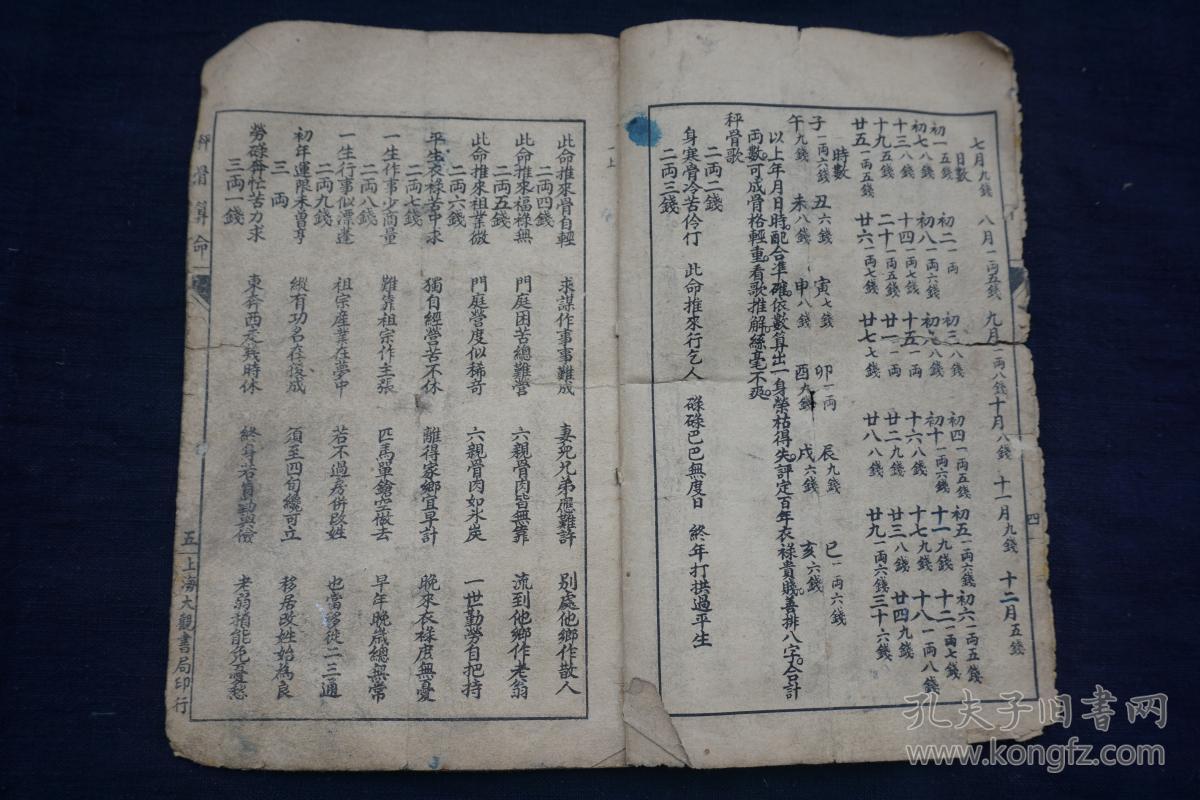 七月九錢 八月一両五錢 九月一両八錢 十月八錢 十一月九錢 十二月五錢
日數
初一五錢 初二一両 初三八錢 初四一両五錢 初五一両六錢 初六一両五錢
初七八錢 初八一両六錢 初九八錢 初十一両六錢 十一九錢 十二一両七錢
十三八錢 十四一両七錢 十五一両 十六八錢 十七九錢 十八一両八錢
十九五錢 二十一両五錢 廿一一両 廿二九錢 廿三八錢 廿四九錢
廿五一両五錢 廿六一両八錢 廿七七錢 廿八八錢 廿九一両六錢 三十六錢
時數
子一両六錢 丑六錢 寅七錢 卯一両 辰九錢 巳一両六錢
午九錢 未八錢 申八錢 酉九錢 戌六錢 亥六錢
以上年月日時。配合準確。依數算出一身榮枯得失。評定百年衣祿貴賤。善排八字。合計
両數。可成骨格輕重。看歌推解。絲毫不爽。
秤骨歌
二両二錢
身寒骨冷苦伶仃 此命推來行乞人 碌碌巴巴無度日 終年打拱過平生
二両三錢
四
此命推來骨自輕 求謀作事事難成 妻兒兄弟應難許 別處他鄉作散人
二両四錢
此命推來福祿無 門庭困苦總難營 六親骨肉皆無靠 流到他鄉作老翁
二両五錢
此命推來祖業微 門庭營度似稀奇 六親骨肉如氷炭 一世勤勞自把持
二両六錢
平生衣祿苦中求 獨自經營苦不休 離得家鄉宜早計 晚來衣祿度無憂
二両七錢
一生作事少商量 難靠祖宗作主張 匹馬單鎗空做去 早年晚歲總無常
二両八錢
一生行事似漂蓬 祖宗產業在夢中 若不過房併改姓 也當移徙二三通
二両九錢
初年運限未曾亨 縱有功名在後成 須至四旬纔可立 移居改姓始為良
三両
勞碌奔忙苦力求 東奔西走幾時休 終身若肯勤與儉 老翁稍能免憂愁
三両一錢
秤骨算命
五
上海大觀書局印行
孔夫子旧书网
www.kongfz.com